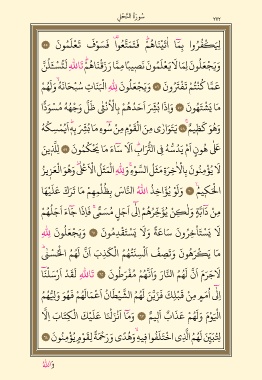 سُورَةُ النَّحْلِ ٢٧٢
لِيَكْفُرُوا بِمَٓا اٰتَيْنَاهُمْۜ فَتَمَتَّعُوا۠ فَسَوْفَ تَعْلَمُونَ ﴿٥٥﴾
وَيَجْعَلُونَ لِمَا لَا يَعْلَمُونَ نَصِيبًا مِمَّا رَزَقْنَاهُمْۜ تَاللّٰهِ لَتُسْـَٔلُنَّ
عَمَّا كُنْتُمْ تَفْتَرُونَ ﴿٥٦﴾ وَيَجْعَلُونَ لِلّٰهِ الْبَنَاتِ سُبْحَانَهُۙ وَلَهُمْ
مَا يَشْتَهُونَ ﴿٥٧﴾ وَاِذَا بُشِّرَ اَحَدُهُمْ بِالْاُنْثٰى ظَلَّ وَجْهُهُ مُسْوَدًّا
وَهُوَ كَظِيمٌۚ ﴿٥٨﴾ يَتَوَارٰى مِنَ الْقَوْمِ مِنْ سُٓوءِ مَا بُشِّرَ بِه۪ۜ اَيُمْسِكُهُ
عَلٰى هُونٍ اَمْ يَدُسُّهُ فِي التُّرَابِۜ اَلَا سَٓاءَ مَا يَحْكُمُونَ ﴿٥٩﴾ لِلَّذِينَ
لَا يُؤْمِنُونَ بِالْاٰخِرَةِ مَثَلُ السَّوْءِۚ وَلِلّٰهِ الْمَثَلُ الْاَعْلٰىۜ وَهُوَ الْعَزِيزُ
الْحَكِيمُ ﴿٦٠﴾ وَلَوْ يُؤَاخِذُ اللّٰهُ النَّاسَ بِظُلْمِهِمْ مَا تَرَكَ عَلَيْهَا
مِنْ دَٓابَّةٍ وَلٰكِنْ يُؤَخِّرُهُمْ اِلٰٓى اَجَلٍ مُسَمًّىۚ فَاِذَا جَٓاءَ اَجَلُهُمْ
لَا يَسْتَأْخِرُونَ سَاعَةً وَلَا يَسْتَقْدِمُونَ ﴿٦١﴾ وَيَجْعَلُونَ لِلّٰهِ
مَا يَكْرَهُونَ وَتَصِفُ اَلْسِنَتُهُمُ الْكَذِبَ اَنَّ لَهُمُ الْحُسْنٰىۜ
لَاجَرَمَ اَنَّ لَهُمُ النَّارَ وَاَنَّهُمْ مُفْرَطُونَ ﴿٦٢﴾ تَاللّٰهِ لَقَدْ اَرْسَلْنَٓا
اِلٰٓى اُمَمٍ مِنْ قَبْلِكَ فَزَيَّنَ لَهُمُ الشَّيْطَانُ اَعْمَالَهُمْ فَهُوَ وَلِيُّهُمُ
الْيَوْمَ وَلَهُمْ عَذَابٌ اَلِيمٌ ﴿٦٣﴾ وَمَٓا اَنْزَلْنَا عَلَيْكَ الْكِتَابَ اِلَّا
لِتُبَيِّنَ لَهُمُ الَّذِي اخْتَلَفُوا فِيهِۙ وَهُدًى وَرَحْمَةً لِقَوْمٍ يُؤْمِنُونَ ﴿٦٤﴾
وَاللّٰهُ